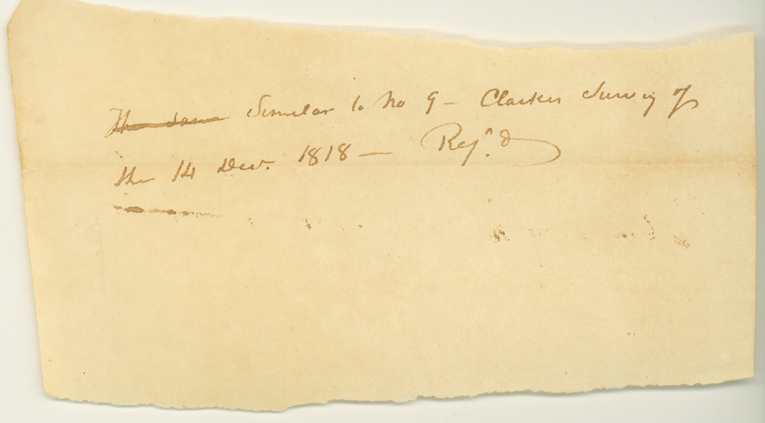 The same Similar to No 9 - Clarkes Survey of
the 14 Decr. 1818 - Rej.d